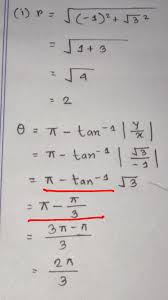 (i) r = √((-1)² + √3²)
= √(1 + 3)
= √4
= 2
θ = π - tan⁻¹ |y/x|
= π - tan⁻¹ |√3/-1|
= π - tan⁻¹ √3
= π - π/3
= (3π - π)/3
= 2π/3